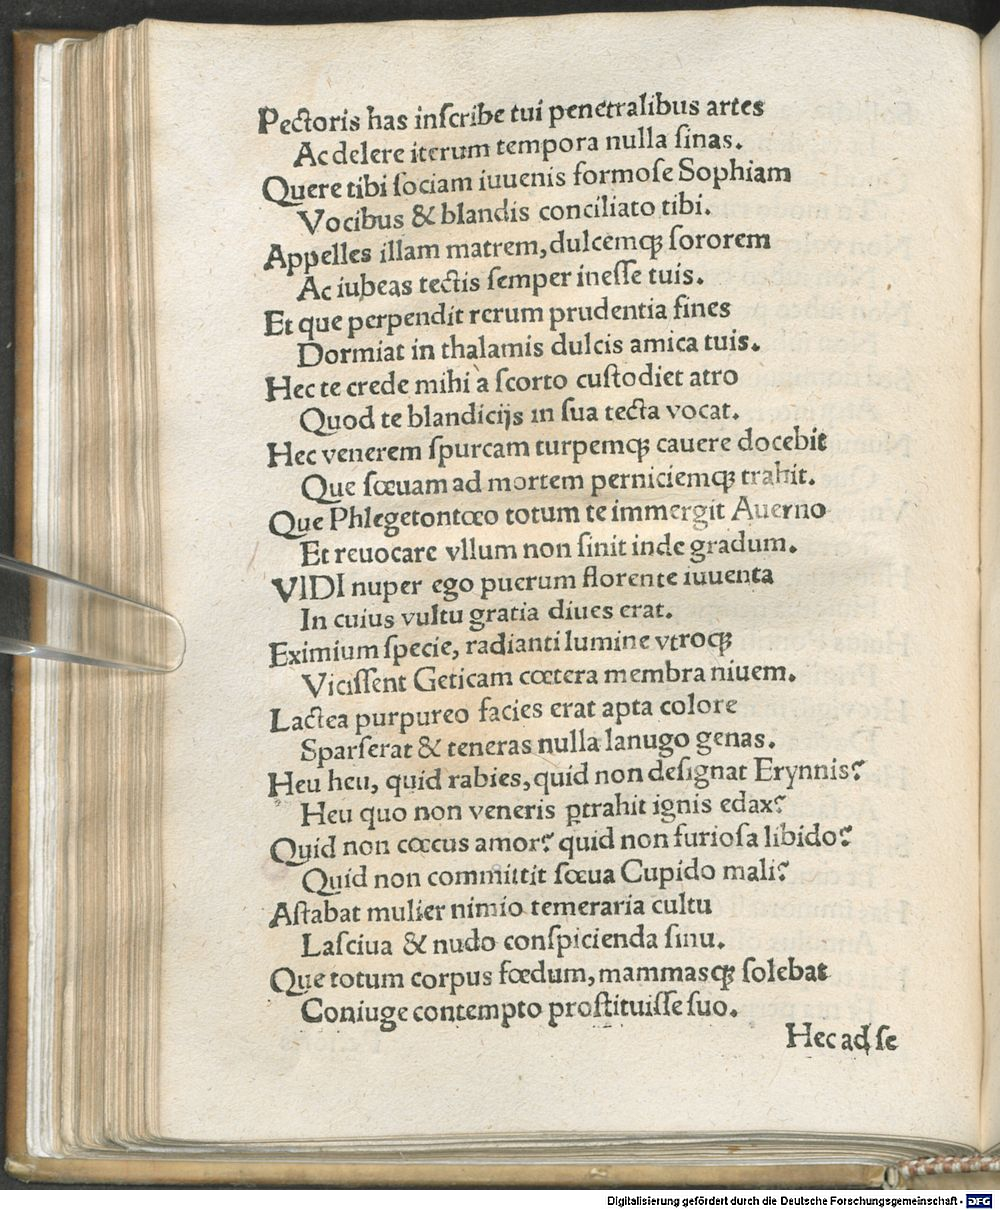 Pectoris has inſcribe tui penetralibus artes
Ac delere iterum tempora nulla ſinas.
Quere tibi ſociam iuuenis formoſe Sophiam
Vocibus & blandis conciliato tibi.
Appelles illam matrem, dulcemqꝫ ſororem
Ac iubeas tectis ſemper ineſſe tuis.
Et que perpendit rerum prudentia fines
Dormiat in thalamis dulcis amica tuis.
Hec te crede mihi à ſcorto cuſtodiet atro
Quod te blandicijs in ſua tecta vocat.
Hec venerem ſpurcam turpemqꝫ cauere docebit
Que ſœuam ad mortem perniciemqꝫ trahit.
Que Phlegetontœo totum te immergit Auerno
Et reuocare vllum non ſinit inde gradum.
VIDI nuper ego puerum florente iuuenta
In cuius vultu gratia diues erat.
Eximium ſpecie, radianti lumine vtroqꝫ
Viciſſent Geticam cœtera membra niuem.
Lactea purpureo facies erat apta colore
Sparſerat & teneras nulla lanugo genas.
Heu heu, quid rabies, quid non deſignat Erynnis?
Heu quo non veneris ꝑtrahit ignis edax?
Quid non cœcus amor? quid non furioſa libido?
Quid non committit ſœua Cupido mali?
Aſtabat mulier nimio temeraria cultu
Laſciua & nudo conſpicienda ſinu.
Que totum corpus fœdum, mammasqꝫ ſolebat
Coniuge contempto proſtituiſſe ſuo.
Hec ad ſe
Digitalisierung gefördert durch die Deutsche Forschungsgemeinschaft - DFG